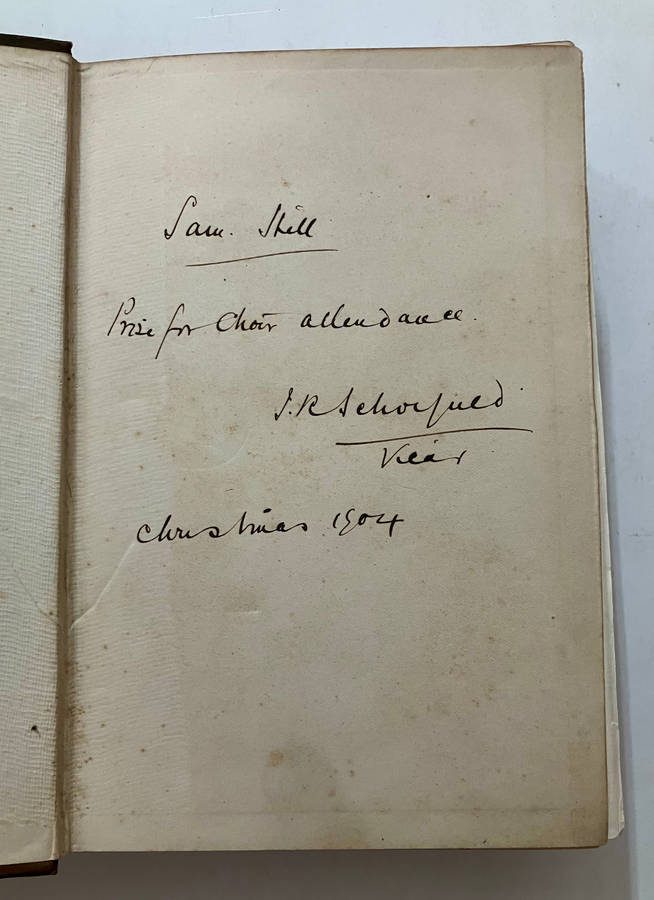 Sam. Still
Prize for Choir attendance.
J. R. Schofield
Vicar
Christmas 1904